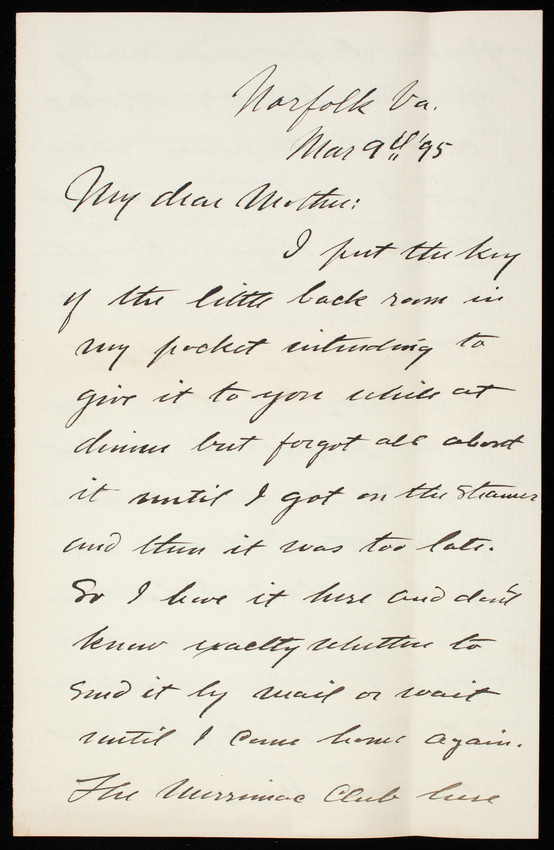 Norfolk Va.
Mar 9th '95
My dear Mother:
I put the key
of the little back room in
my pocket intending to
give it to you while at
dinner but forgot all about
it until I got on the steamer
and then it was too late.
So I have it here and don't
know exactly whether to
send it by mail or wait
until I come home again.
The Merrimac Club here